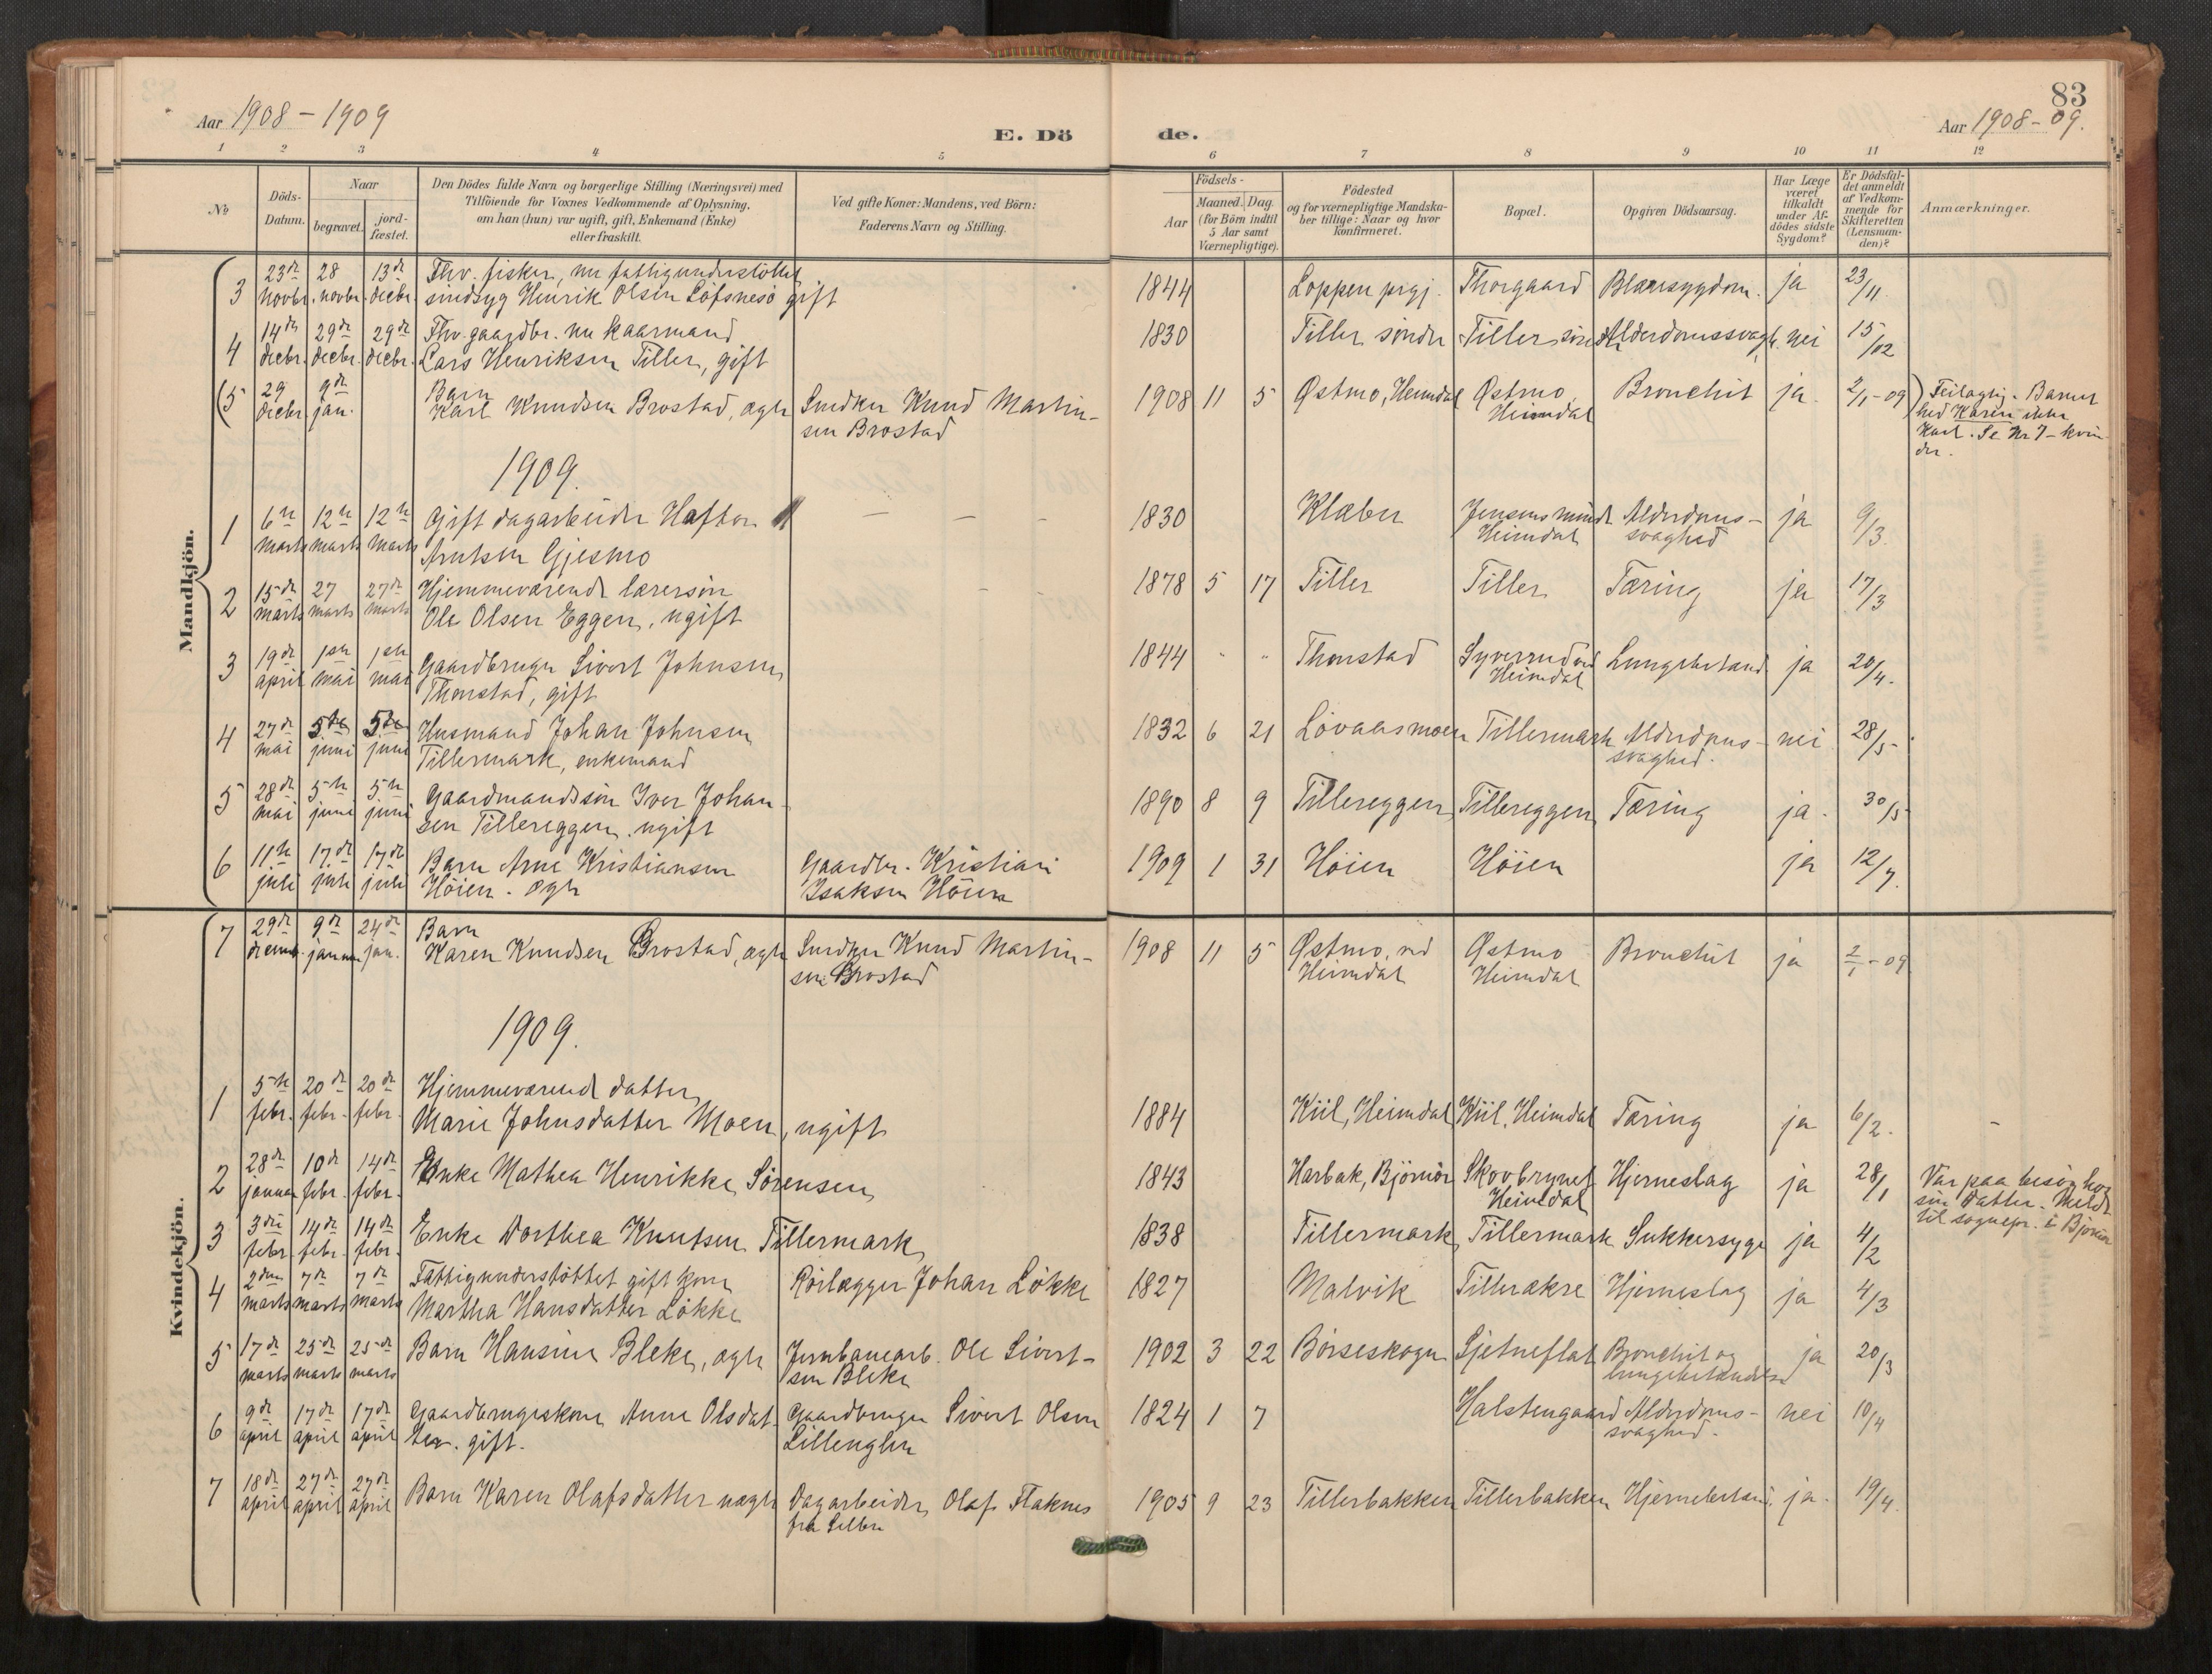 83
Aar 1908 - 1909
E. Dö
de.
Aar 1908 - 09.
1 2 3 4 5 6 7 8 9 10 11 12
No
Döds-
Datum.
Naar
begravet.
jord-
fæstet.
Den Dödes fulde Navn og borgerlige Stilling (Næringsvei) med
Tilföiende for Voxnes Vedkommende af Oplysning,
om han (hun) var ugift, gift, Enkemand (Enke)
eller fraskilt.
Ved gifte Koner: Mandens, ved Börn:
Faderens Navn og Stilling.
Födsels-
Aar
Maaned. Dag.
(for Börn indtil
5 Aar samt
Værnepligtige).
Födested
og for værnepligtige Mandska-
ber tillige: Naar og hvor
konfirmeret.
Bopæl.
Opgiven Dödsaarsag.
Har Læge
været
tilkaldt
under Af-
dödes sidste
Sygdom?
Er Dödsfal-
det anmeldt
af Vedkom-
mende for
Skifteretten
(Lensman-
den)?
Anmærkninger.
Mandkjön.
3 23de 28 13de Fhv. fisker, nu fattigunderstöttet 1844 Loppen prgj. Thorgaard Blæresygdom. ja 23/11
novbr. novbr. decbr. sindsyg Henrik Olsen Löfsnesö gift
4 14de 29de 29de Fhv. gaardbr. nu kaarmand 1830 Tiller söndre Tiller söndre Alderdomssvagh. nei 15/12
decbr. decbr. decbr. Lars Henriksen Tiller, gift
(5 29 9de Barn
decbr jan. Karl Knudsen Brostad, ægte Snedker Knud Martin- 1908 11 5 Østmo, Heimdal Østmo, Bronchit ja 2/1-09) Feilagtig. Barnet
sen Brostad Heimdal hed Karen ikke
Karl. Se Nr 7 - kvin-
der.
1909.
1 6te 12te 12te Gift dagarbeider Haftor — — — 1830 Klæbu Jensens minde Alderdoms- ja 9/3
marts marts marts Arntsen Gjesmo Heimdal svaghed
2 15de 27 27de Hjemmeværende lærersön - - 1878 5 17 Tiller Tiller Tæring ja 17/3
marts marts marts Ole Olsen Eggen, ugift
3 19de 1ste 1ste Gaardbruger Sivert Johnsen 1844 " " Thonstad Lungebetænd ja 20/4.
april mai mai Thonstad, gift Heimdal
4 27de 5te 5te Husmand Johan Johnsen 1832 6 21 Lövaasmoen Tillermark Alderdoms- nei 28/5
mai juni juni Tillermark, enkemand svaghed.
5 28de 5te 5te Gaardmandssön Iver Johan- 1890 8 9 Tillereggen Tillereggen Tæring ja. 30/5
mai juni juni sen Tillereggen. ugift
6 11te 17de 17de Barn Arne Kristiansen Gaardbr. Kristian 1909 1 31 Höien Höien ja 12/7.
juli juli juli Höien - ægte Isaksen Höien
Kvindekjön.
7 29de 9de 24de Barn
decemb. januar jan. Karen Knudsen Brostad, ægte Snedker Knud Martin- 1908 11 5 Østmo, ved Østmo Bronchit ja 2/1-09
sen Brostad Heimdal Heimdal
1909.
1 5te 20de 20de Hjemmeværende datter
febr. febr. febr. Marie Johnsdatter Moen, ugift 1884 Kiil, Heimdal Kiil, Heimdal Tæring ja 6/2. -
2 28de 10de 14de Enke Mathea Henrikke Sörensen 1843 Harbak, Björnör Skovbrynet Hjerneslag ja 28/1 Var paa besög hos
januar febr. febr. Heimdal sin datter. Meldt
til sognepr. i Björnör
3 3die 14de 14de Enke Dorthea Knutsen Tillermark 1838 Tillermark Tillermark Sukkersyge ja 4/2
febr. febr. febr.
4 2den 7de 7de Fattigunderstöttet gift kone Rörlægger Johan Lökke 1827 Malvik Tillerækre Hjerneslag ja 4/3
marts marts marts Martha Hansdatter Lökke
5 17de 25de 25de Barn Hansine Bleke, ægte Jernbanearb. Ole Sivert- 1902 3 22 Börseskogn Sjetneflat Bronchit og ja 20/3
marts marts marts sen Bleke lungebetændelse
6 9de 17de 17de Gaardbrugerskone Anne Olsdat- Gaardbruger Sivert Olsen 1824 1 7 Halstengaard Alderdoms- nei 10/4
april april april ter. gift. svaghed.
7 18de 27de 27de Barn Karen Olafsdatter uægte Dagarbeider Olaf Flaknes 1905 9 23 Tillerbakken Tillerbakken Hjernebetænd. ja. 19/4.
april april april fra Selbu